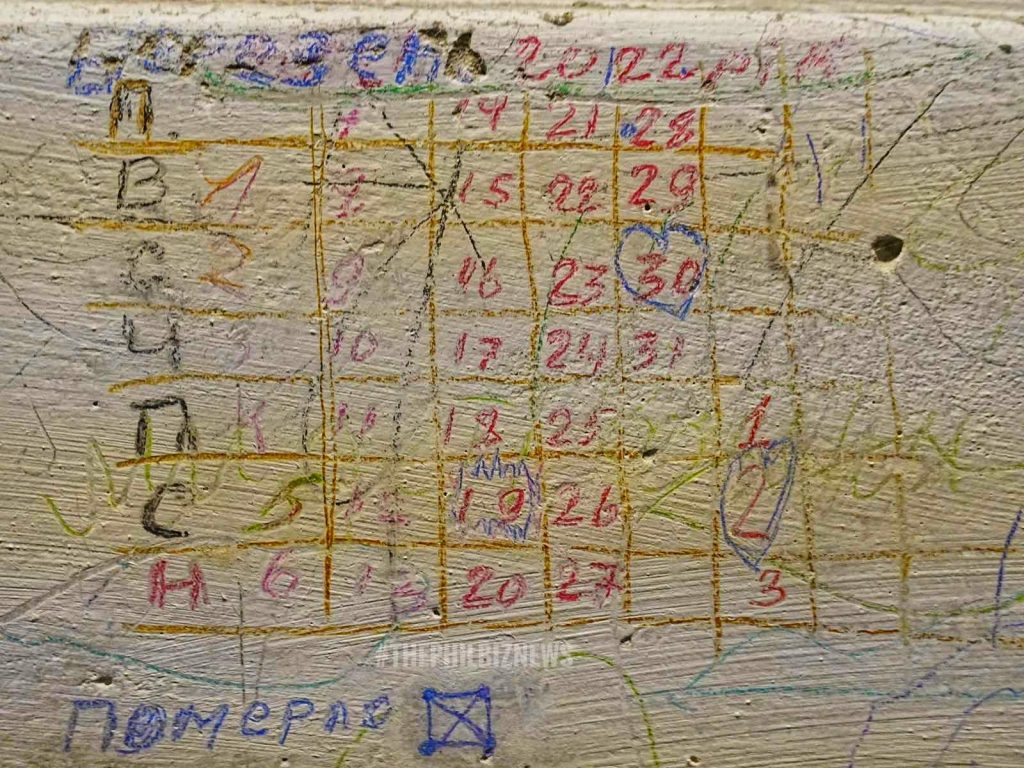 Березень 2022 рік
П 7 14 21 28
В 1 8 15 22 29
С 2 9 16 23 30
Ч 3 10 17 24 31
П 4 11 18 25 1
С 5 12 19 26 2
Н 6 13 20 27 3
#THEPHILBIZNEWS
Померло